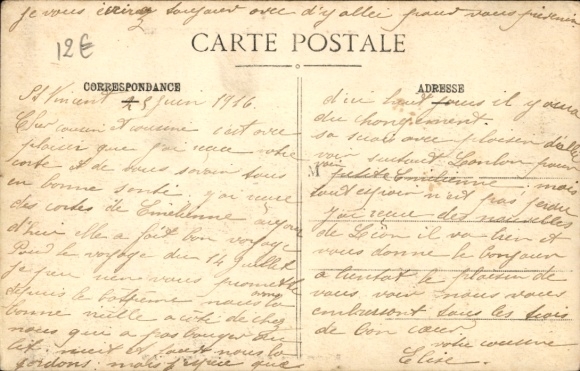 je vous écrirez toujour avec d'y allei pour vous prévenir
12€
CARTE POSTALE
CORRESPONDANCE
ADRESSE
St Vincent 25 juin 1916.
Cher cousin et cousine c'est avec
plaisir que j'ai reçue votre
carte et de vous savoir tous
en bonne santé j'ai reçue
des cartes de Emélienne aujour
d'hui elle a fait bon voyage
Pour le voyage du 14 Juillet
je peu rien vous promettre
depuis le nous avons
bonne nuille a côté de chez
nous qui a pas bouger du
lit nuit et jour nous la
gardons mais j'espère que
d'ici tous il y aura
du changement.
sa serais avec plaisir d'allé
voir surtout pour
M petite Emélienne mais
tout espoir n'est pas perdu
j'ai reçue des nouvelles
de Léon il va bien et
vous donne le bonjour
a bientot le plaisir de
vous voir nous vous
embrassont tous les trois
de bon cœur
votre cousine
Elise.